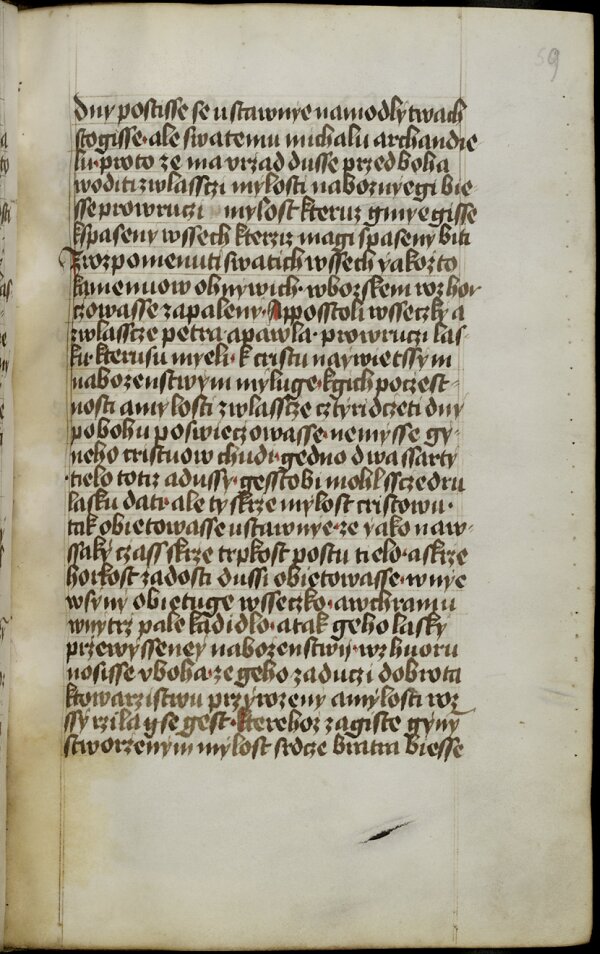 59
dny postisse se ustawnye namodlytwach
stogisse· ale swatemu michalu archandie
lu· proto ze ma vrzad dusse przed boha
woditi zwlasstzi mylosti naboznyegi bie-
sse prowruczi mylost kteruz gmyegisse
kspaseny wssech kterziz magi spaseny biti
Trozpomenuti swatich wssech yakozto
kamenuow ohnywich· wbozskem rozhor
czowasse zapaleny· Apposstoli wsseczky a
zwlasscze petra apawla· prowruczi las-
ku· kterusu myeli· k cristu naywietssym
nabozenstwym myluge· kgich poczest-
nosti amylosti zwlasscze cztyridczeti dny
pobohu poswieczowasse· nemysse gy-
neho cristuow chudi· gedno dwa ssarty
tielo totiz adussy· gesstobi mohl sscedru
lasku dati· ale ty skrze mylost cristowu·
tak obietowasse ustawnye· ze yako naw-
ssaky czass skrze trpkost postu tielo· askrze
horkost zadosti dussi obietowasse· wnye
wsyny obietuge wsseczko· awchramu
wnytrz pale kadidlo· atak geho lasky
przewysseney nabozenstwy· wzhuoru
nosisse vboha· ze geho zaduczi dobrota
ktowarzistwu przyrozeny amylosti roz
ssyrzila gse gest· kterehoz zagiste gyny
stworzenym mylost srdcze bratra biesse